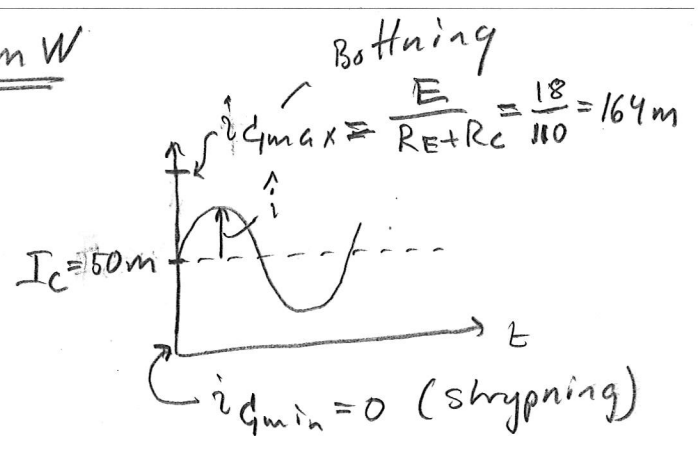 m W
Bottning
î C,max = E / (RE + RC) = 18 / 110 = 164 m
î
IC = 50 m
t
i C,min = 0 (strypning)